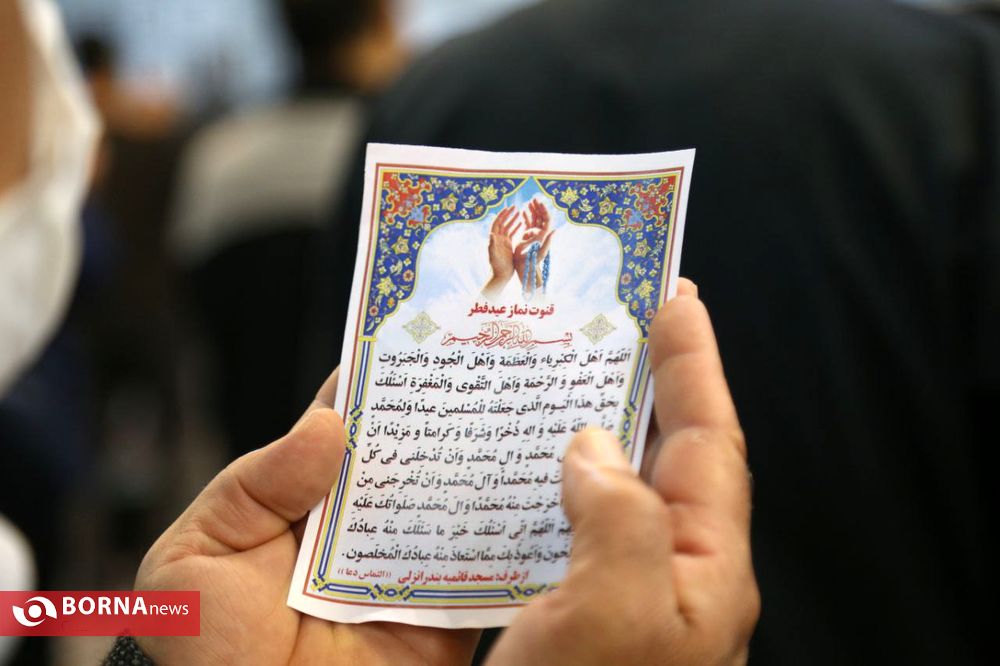 قنوت نماز عیدفطر
بِسْمِ اللهِ الرَّحْمنِ الرَّحیمِ
اَللّهُمَّ اَهْلَ الْکِبْرِیاءِ وَالْعَظَمَةِ وَاَهْلَ الْجُودِ وَالْجَبَرُوتِ
وَاَهْلَ الْعَفْوِ وَ الرَّحْمَةِ وَاَهْلَ التَّقْوی وَالْمَغْفِرَةِ اَسْئَلُكَ
بِحَقِّ هذَا الْیَومِ الَّذی جَعَلْتَهُ لِلْمُسْلِمینَ عیدًا وَلِمُحَمَّدٍ
اللهُ عَلَیْهِ وَ الِهِ ذُخْرًا وَشَرَفًا وَ کَرامَتاً وَ مَزیْدًا اَنْ
مُحَمَّدٍ وَ الِ مُحَمَّدٍ وَاَنْ تُدْخِلَنی فی کُلِّ
فیهِ مُحَمَّدًا وَ آلَ مُحَمَّدٍ وَ اَنْ تُخْرِجَنی مِنْ
مِنْهُ مُحَمَّدًا وَ الَ مُحَمَّدٍ صَلَواتُكَ عَلَیْهِ
اَللّهُمَّ اِنّی اَسْئَلُكَ خَیْرَ ما سَئَلَكَ مِنْهُ عِبادُكَ
وَ اَعُوذُ بِكَ مِمَّا اسْتَعاذَ مِنْهُ عِبادُكَ الْمُخْلَصُونَ.
ازطرف: مسجد قائمیه بندرانزلی ((التماس دعا))
BORNAnews